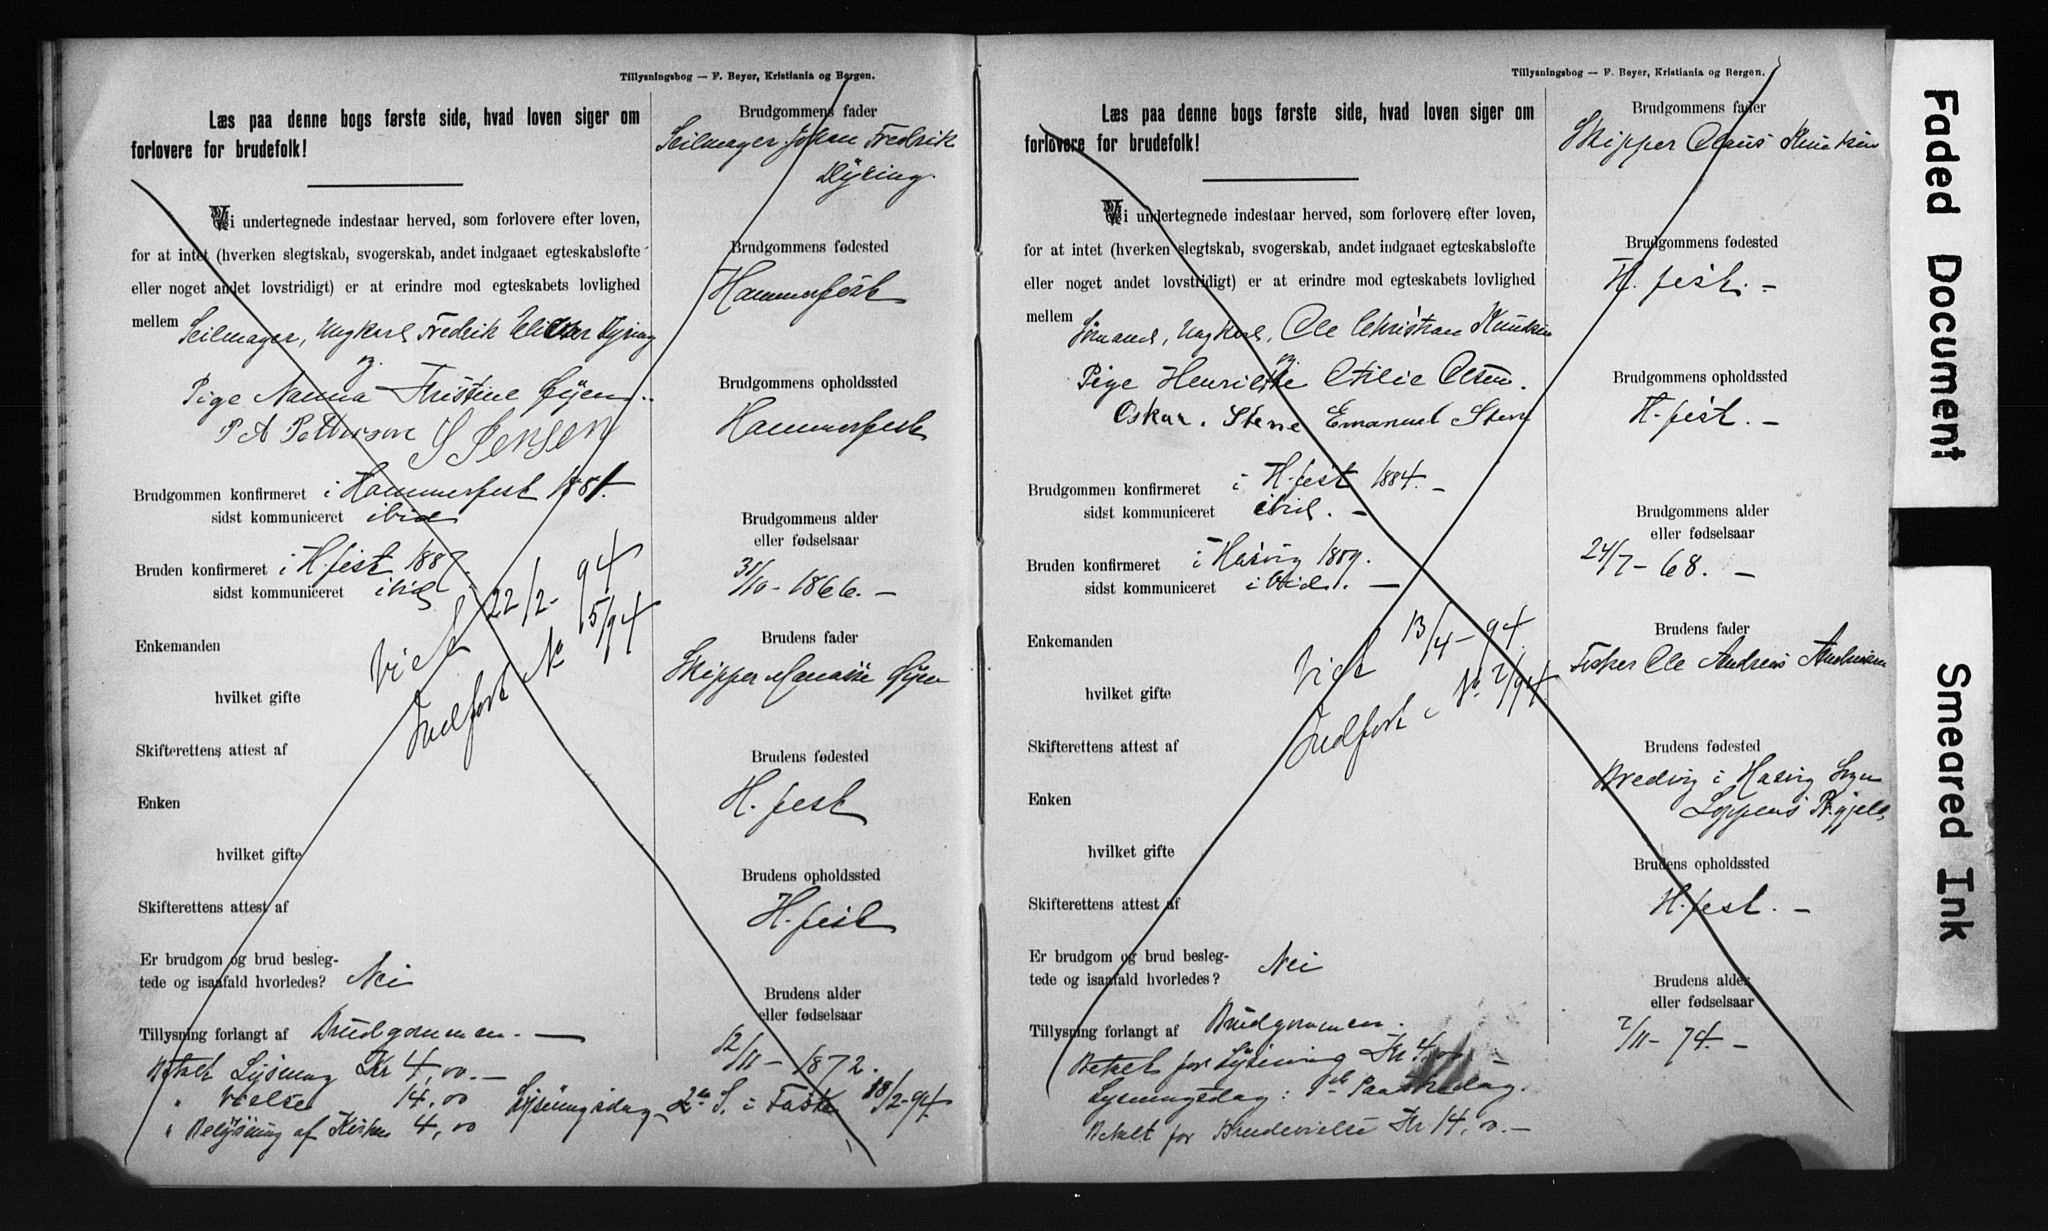 Tillysningsbog — F. Beyer, Kristiania og Bergen.
Læs paa denne bogs første side, hvad loven siger om
forlovere for brudefolk!
Vi undertegnede indestaar herved, som forlovere efter loven,
for at intet (hverken slegtskab, svogerskab, andet indgaaet egteskabsløfte
eller noget andet lovstridigt) er at erindre mod egteskabets lovlighed
mellem Seilmager, Ungkarl Fredrik Dyring
og
Pige Nanna Kristine Øyen
P A Petterson S Jensen
Brudgommen konfirmeret i Hammerfest 1881.
sidst kommuniceret ibid
Bruden konfirmeret i H.fest 1887.
sidst kommuniceret ibid
Enkemanden
Viet 22/2-94
hvilket gifte
Indført No 15/94
Skifterettens attest af
Enken
hvilket gifte
Skifterettens attest af
Er brudgom og brud besleg-
tede og isaafald hvorledes? Nei
Tillysning forlangt af Brudgommen. —
Betalt Lysning Kr 4,00. —
" Vielse 14,00 Lysningsdag 2den S. i Faste 18/2-94
" Belysning af Kirken 4,00
Brudgommens fader
Seilmager Johan Fredrik
Dyring.
Brudgommens fødested
Hammerfest
Brudgommens opholdssted
Hammerfest
Brudgommens alder
eller fødselsaar
31/10-1866. —
Brudens fader
Skipper Manasse Øyen
Brudens fødested
H.fest
Brudens opholdssted
H.fest
Brudens alder
eller fødselsaar
12/11-1872.
Tillysningsbog — F. Beyer, Kristiania og Bergen.
Læs paa denne bogs første side, hvad loven siger om
forlovere for brudefolk!
Vi undertegnede indestaar herved, som forlovere efter loven,
for at intet (hverken slegtskab, svogerskab, andet indgaaet egteskabsløfte
eller noget andet lovstridigt) er at erindre mod egteskabets lovlighed
mellem Sømand, Ungkarl, Ole Christian Knudsen
og
Pige Henriette Otilie Olsen.
Oskar. Stene Emanuel Stene
Brudgommen konfirmeret i H.fest 1884. —
sidst kommuniceret ibid. —
Bruden konfirmeret i Hasvig 1889.
sidst kommuniceret ibid. —
Enkemanden
Viet 13/4-94.
hvilket gifte
Indført i No 2/94.
Skifterettens attest af
Enken
hvilket gifte
Skifterettens attest af
Er brudgom og brud besleg-
tede og isaafald hvorledes? Nei
Tillysning forlangt af Brudgommen.
Betalt for Lysning Kr 4,00 —
Lysningsdag: Paaskedag.
Betalt for Brudevielse Kr 14,00. —
Brudgommens fader
Skipper Claus Knudsen
Brudgommens fødested
H.fest. —
Brudgommens opholdssted
H.fest. —
Brudgommens alder
eller fødselsaar
24/7-68. —
Brudens fader
Fisker Ole Andreas Andreasen
Brudens fødested
Bredvig i Hasvig Sogn
Loppens Pr.gjeld
Brudens opholdssted
H.fest. —
Brudens alder
eller fødselsaar
2/11-74. —
Faded Document
Smeared Ink